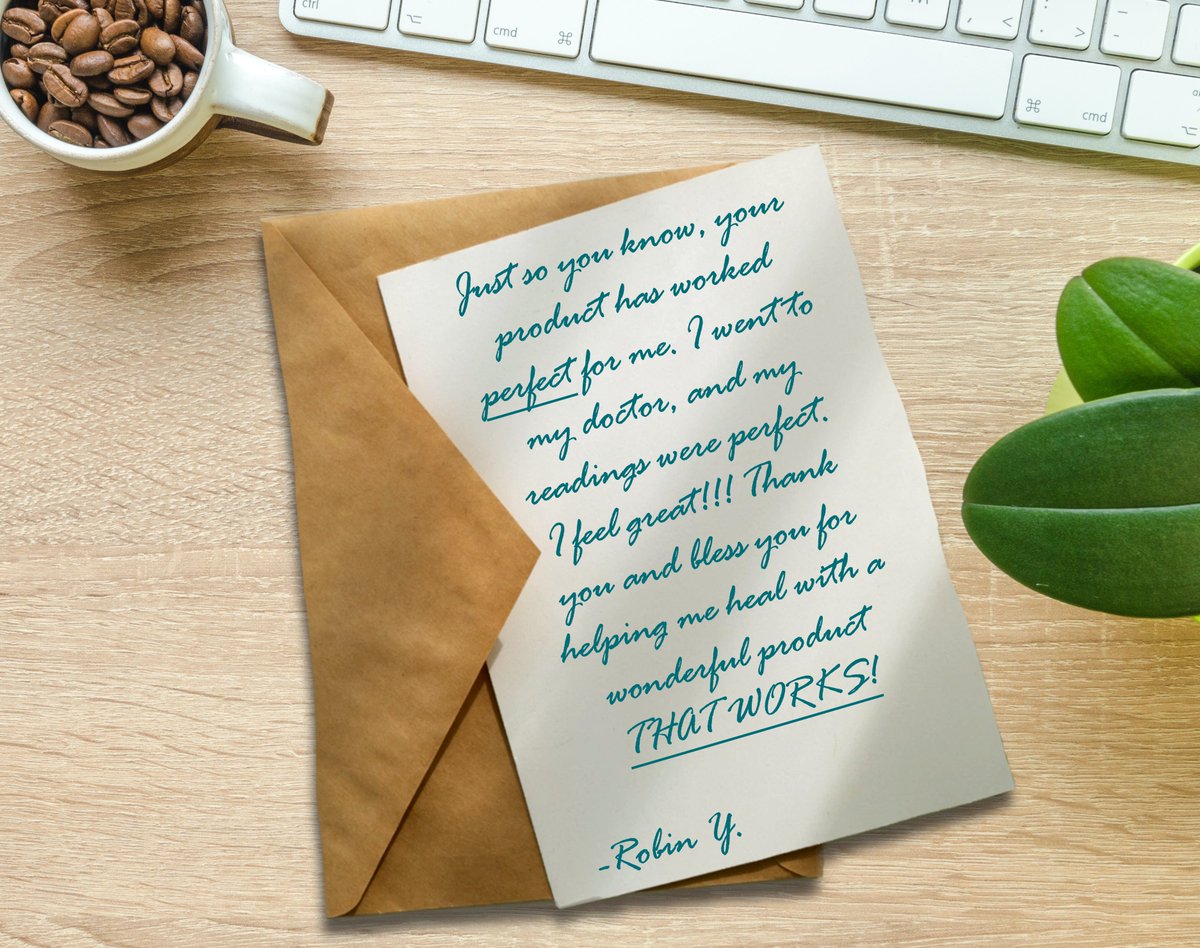 ctrl
cmd ⌘
⌘ cmd
Just so you know, your
product has worked
perfect for me. I went to
my doctor, and my
readings were perfect.
I feel great!!! Thank
you and bless you for
helping me heal with a
wonderful product
THAT WORKS!
-Robin Y.